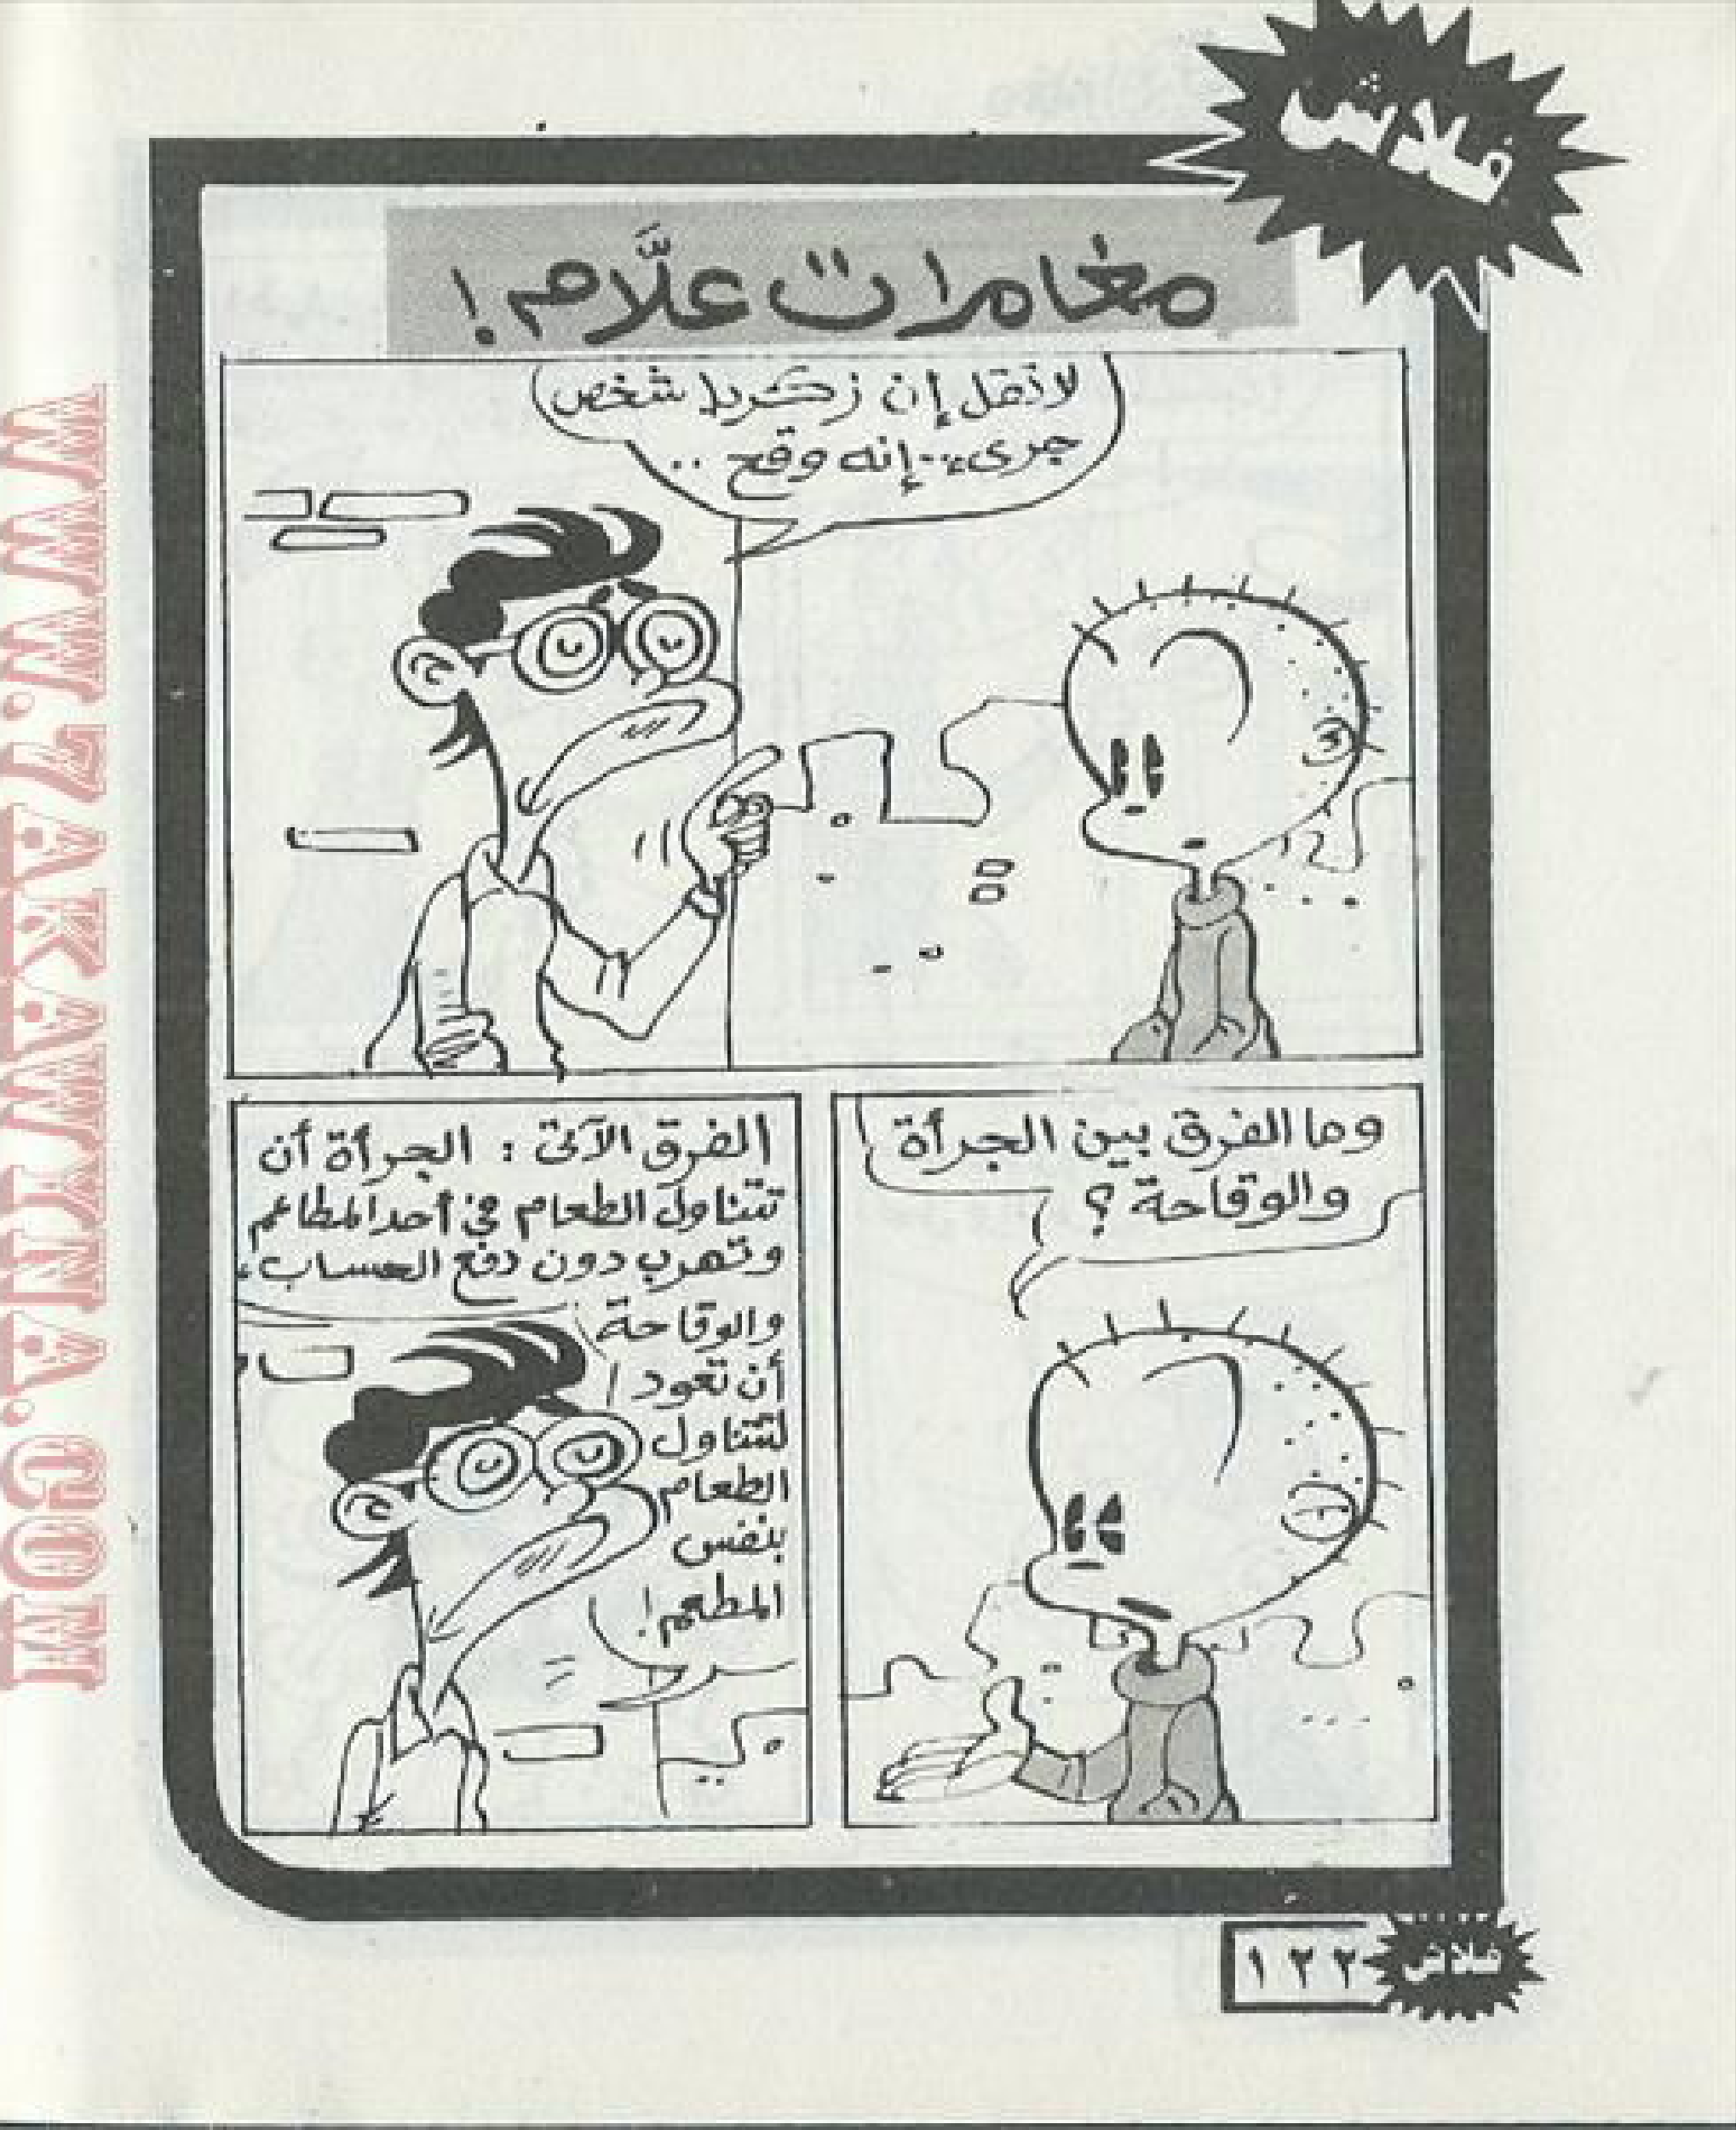 فلاش
مغامرات علَّام!
لا تقل إن زكريا شخص
جرىء.. إنه وقح ..
وما الفرق بين الجرأة
والوقاحة ؟
الفرق الآتى : الجرأة أن
تتناول الطعام في أحد المطاعم
وتهرب دون دفع الحساب،
والوقاحة
أن تعود
لتتناول
الطعام
بنفس
المطعم!
فلاش
١٢٢
WWW.7AKAWITNA.COM